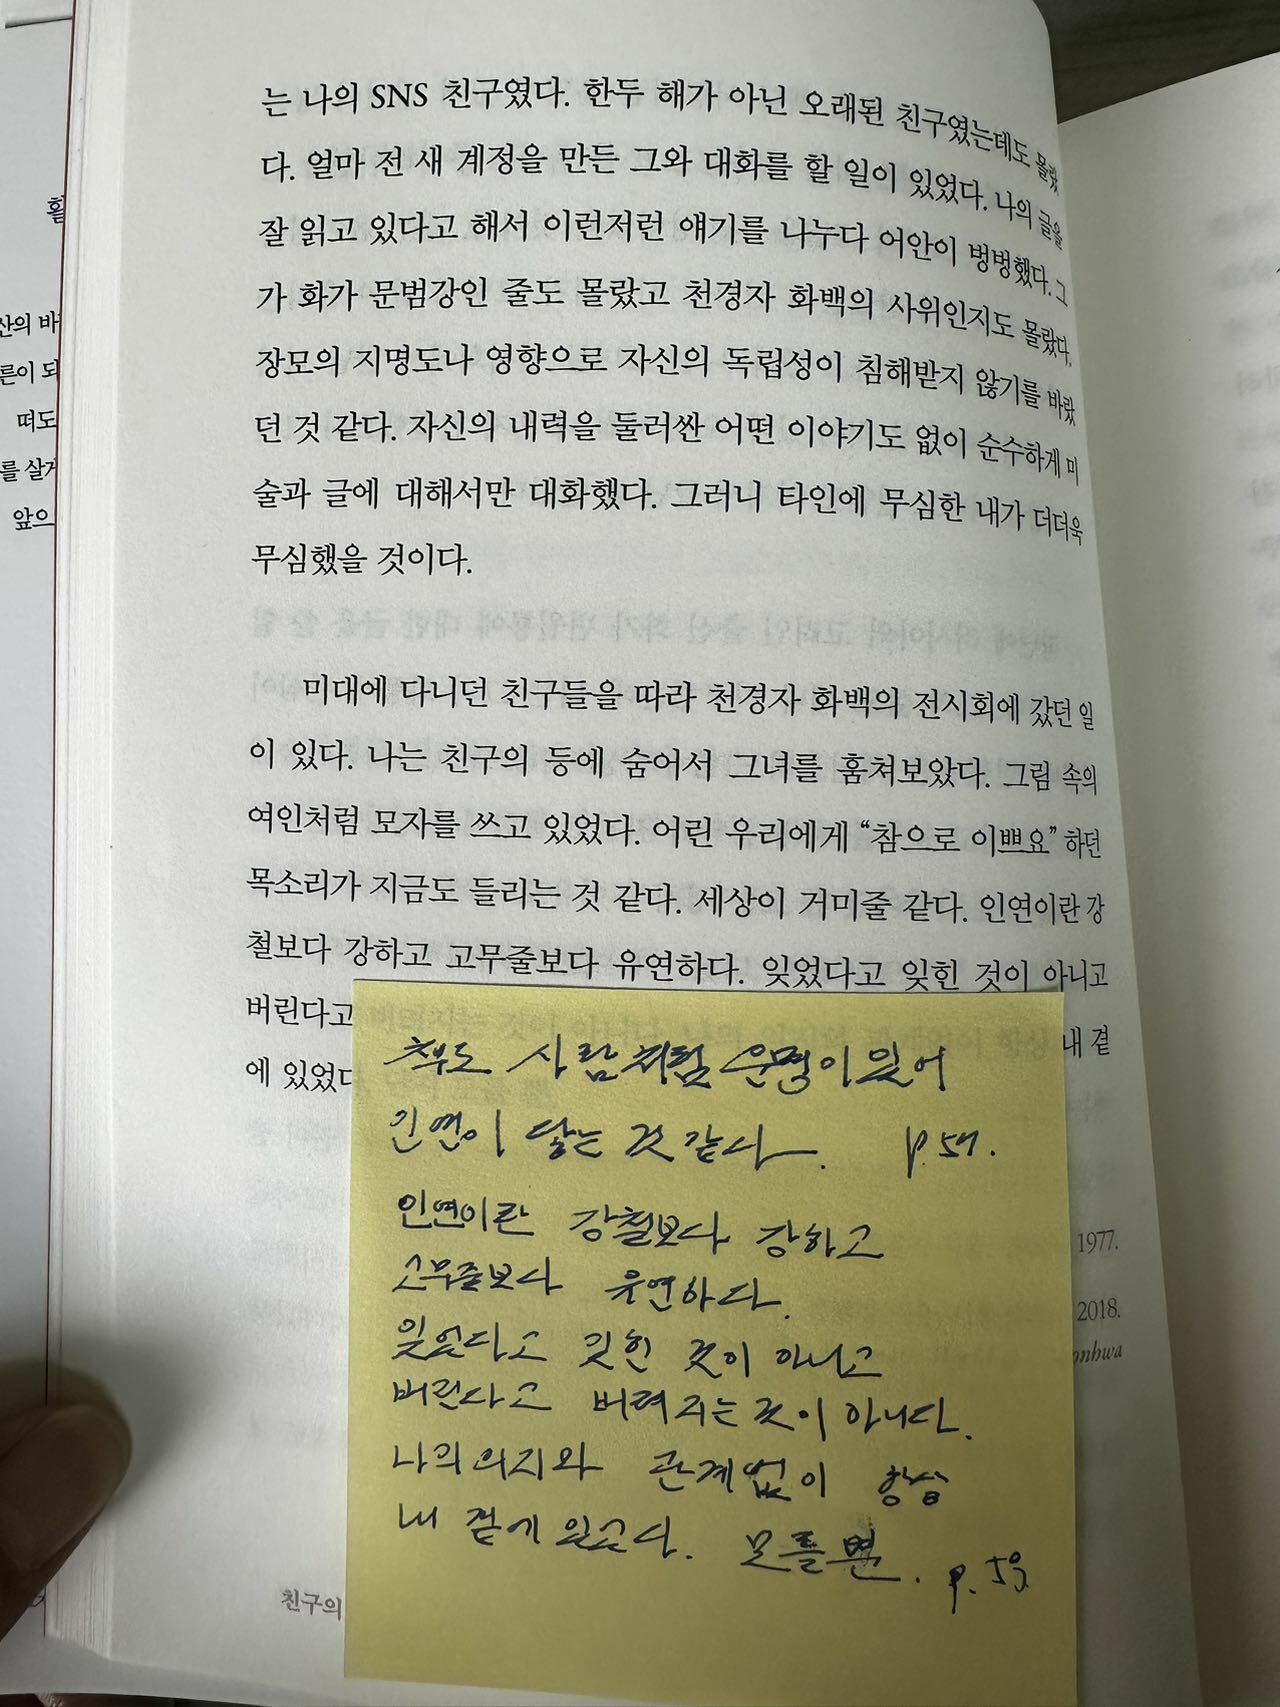 는 나의 SNS 친구였다. 한두 해가 아닌 오래된 친구였는데도 몰랐
다. 얼마 전 새 계정을 만든 그와 대화를 할 일이 있었다. 나의 글을
잘 읽고 있다고 해서 이런저런 얘기를 나누다 어안이 벙벙했다. 그
가 화가 문범강인 줄도 몰랐고 천경자 화백의 사위인지도 몰랐다.
장모의 지명도나 영향으로 자신의 독립성이 침해받지 않기를 바랐
던 것 같다. 자신의 내력을 둘러싼 어떤 이야기도 없이 순수하게 미
술과 글에 대해서만 대화했다. 그러니 타인에 무심한 내가 더더욱
무심했을 것이다.
미대에 다니던 친구들을 따라 천경자 화백의 전시회에 갔던 일
이 있다. 나는 친구의 등에 숨어서 그녀를 훔쳐보았다. 그림 속의
여인처럼 모자를 쓰고 있었다. 어린 우리에게 “참으로 이쁘요” 하던
목소리가 지금도 들리는 것 같다. 세상이 거미줄 같다. 인연이란 강
철보다 강하고 고무줄보다 유연하다. 잊었다고 잊힌 것이 아니고
버린다고 내 곁
에 있었다
책도 사람처럼 운명이 있어
인연이 닿는 것 같다. p.57.
인연이란 강철보다 강하고
고무줄보다 유연하다.
잊었다고 잊힌 것이 아니고
버린다고 버려지는 것이 아니다.
나의 의지와 관계없이 항상
내 곁에 있었다. 모를 뿐. p.59.
1977.
2018.
onhwa
친구의
산의 바
른이 되
떠도
를 살게
앞으